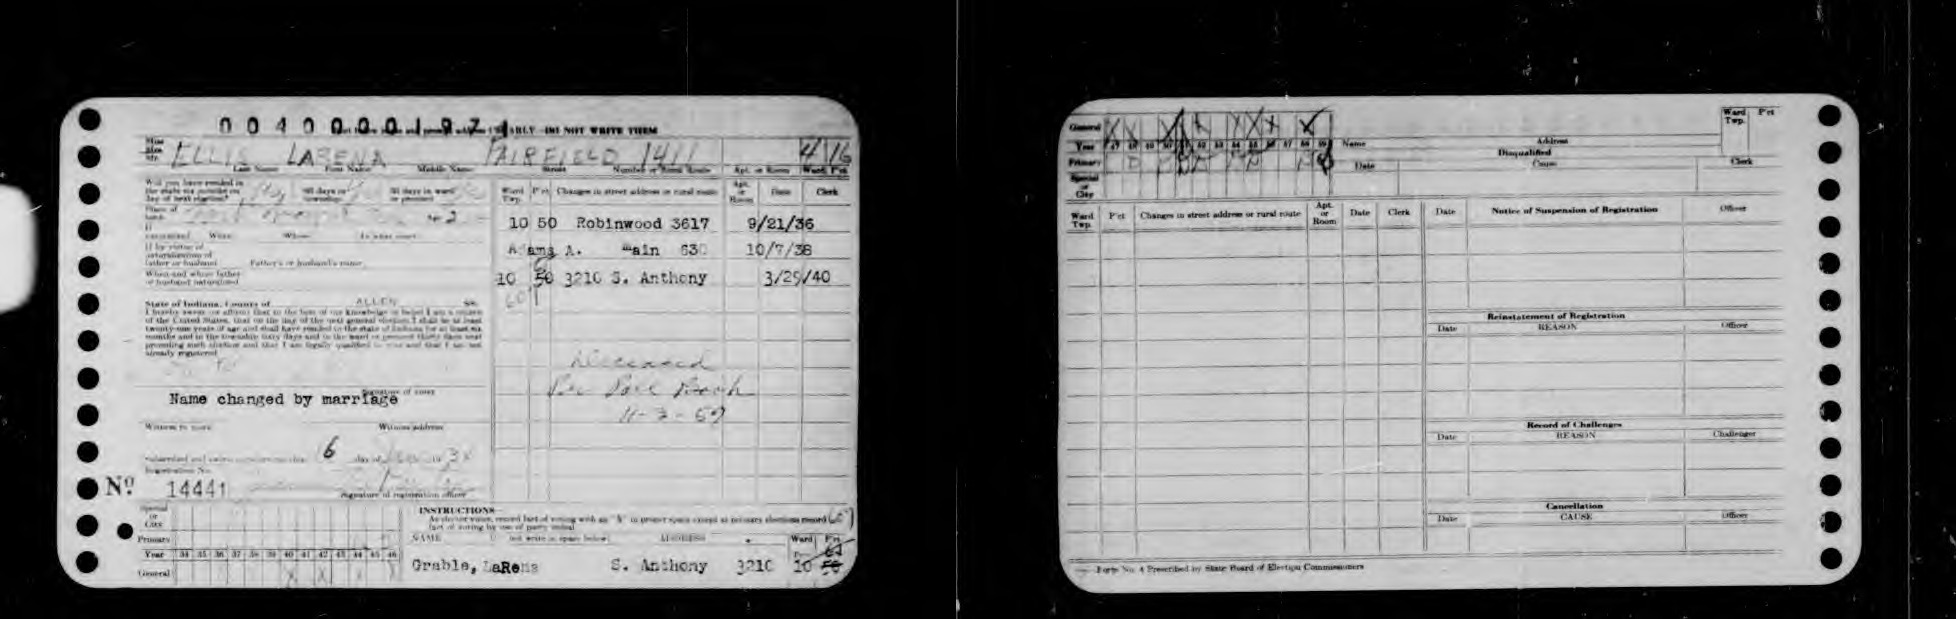 0040000197
EARLY—DO NOT WRITE THEM
Miss
Mrs.
Mr. ELLIS LARENA FAIRFIELD 1411 4 16
Last Name First Name Middle Name Street Number or Rural Route Apt. or Room Ward P'ct
Will you have resided in the state six months on day of next election? 60 days in township? 30 days in ward or precinct
Place of birth
If naturalized When Where In what court
If by virtue of naturalization of father or husband Father's or husband's name
When and where father or husband naturalized
State of Indiana, County of ALLEN SS:
I hereby swear (or affirm) that to the best of my knowledge or belief I am a citizen
of the United States, that on the day of the next general election I shall be at least
twenty-one years of age and shall have resided in the state of Indiana for at least six
months and in the township sixty days and in the ward or precinct thirty days next
preceding such election and that I am legally qualified to vote and that I am not
already registered.
Signature of voter
Name changed by marriage
Witness to mark Witness address
Subscribed and sworn to before me this 6 day of
Registration No.
Nº 14441
Signature of registration officer
Ward Twp. P'ct Changes in street address or rural route Apt. or Room Date Clerk
10 50 Robinwood 3617 9/21/36
Adams A. Main 630 10/7/38
10 50 3210 S. Anthony 3/29/40
Deceased
Per Poll Book
11-3-59
Special or City
Primary
Year 34 35 36 37 38 39 40 41 42 43 44 45 46
General X X X X
INSTRUCTIONS
As elector votes, record fact of voting with an "X" in proper space except at primary elections record
fact of voting by use of party initial
NAME not write in space below ADDRESS Ward P'ct
Grable, LaRena S. Anthony 3210 10 50
General
Year 47 48 49 50 51 52 53 54 55 56 57 58 59
Primary
Special or City
Name Address Ward Twp. P'ct
Disqualified
Date Cause Clerk
Ward Twp. P'ct Changes in street address or rural route Apt. or Room Date Clerk
Date Notice of Suspension of Registration Officer
Reinstatement of Registration
Date REASON Officer
Record of Challenges
Date REASON Challenger
Cancellation
Date CAUSE Officer
Form No. 4 Prescribed by State Board of Election Commissioners